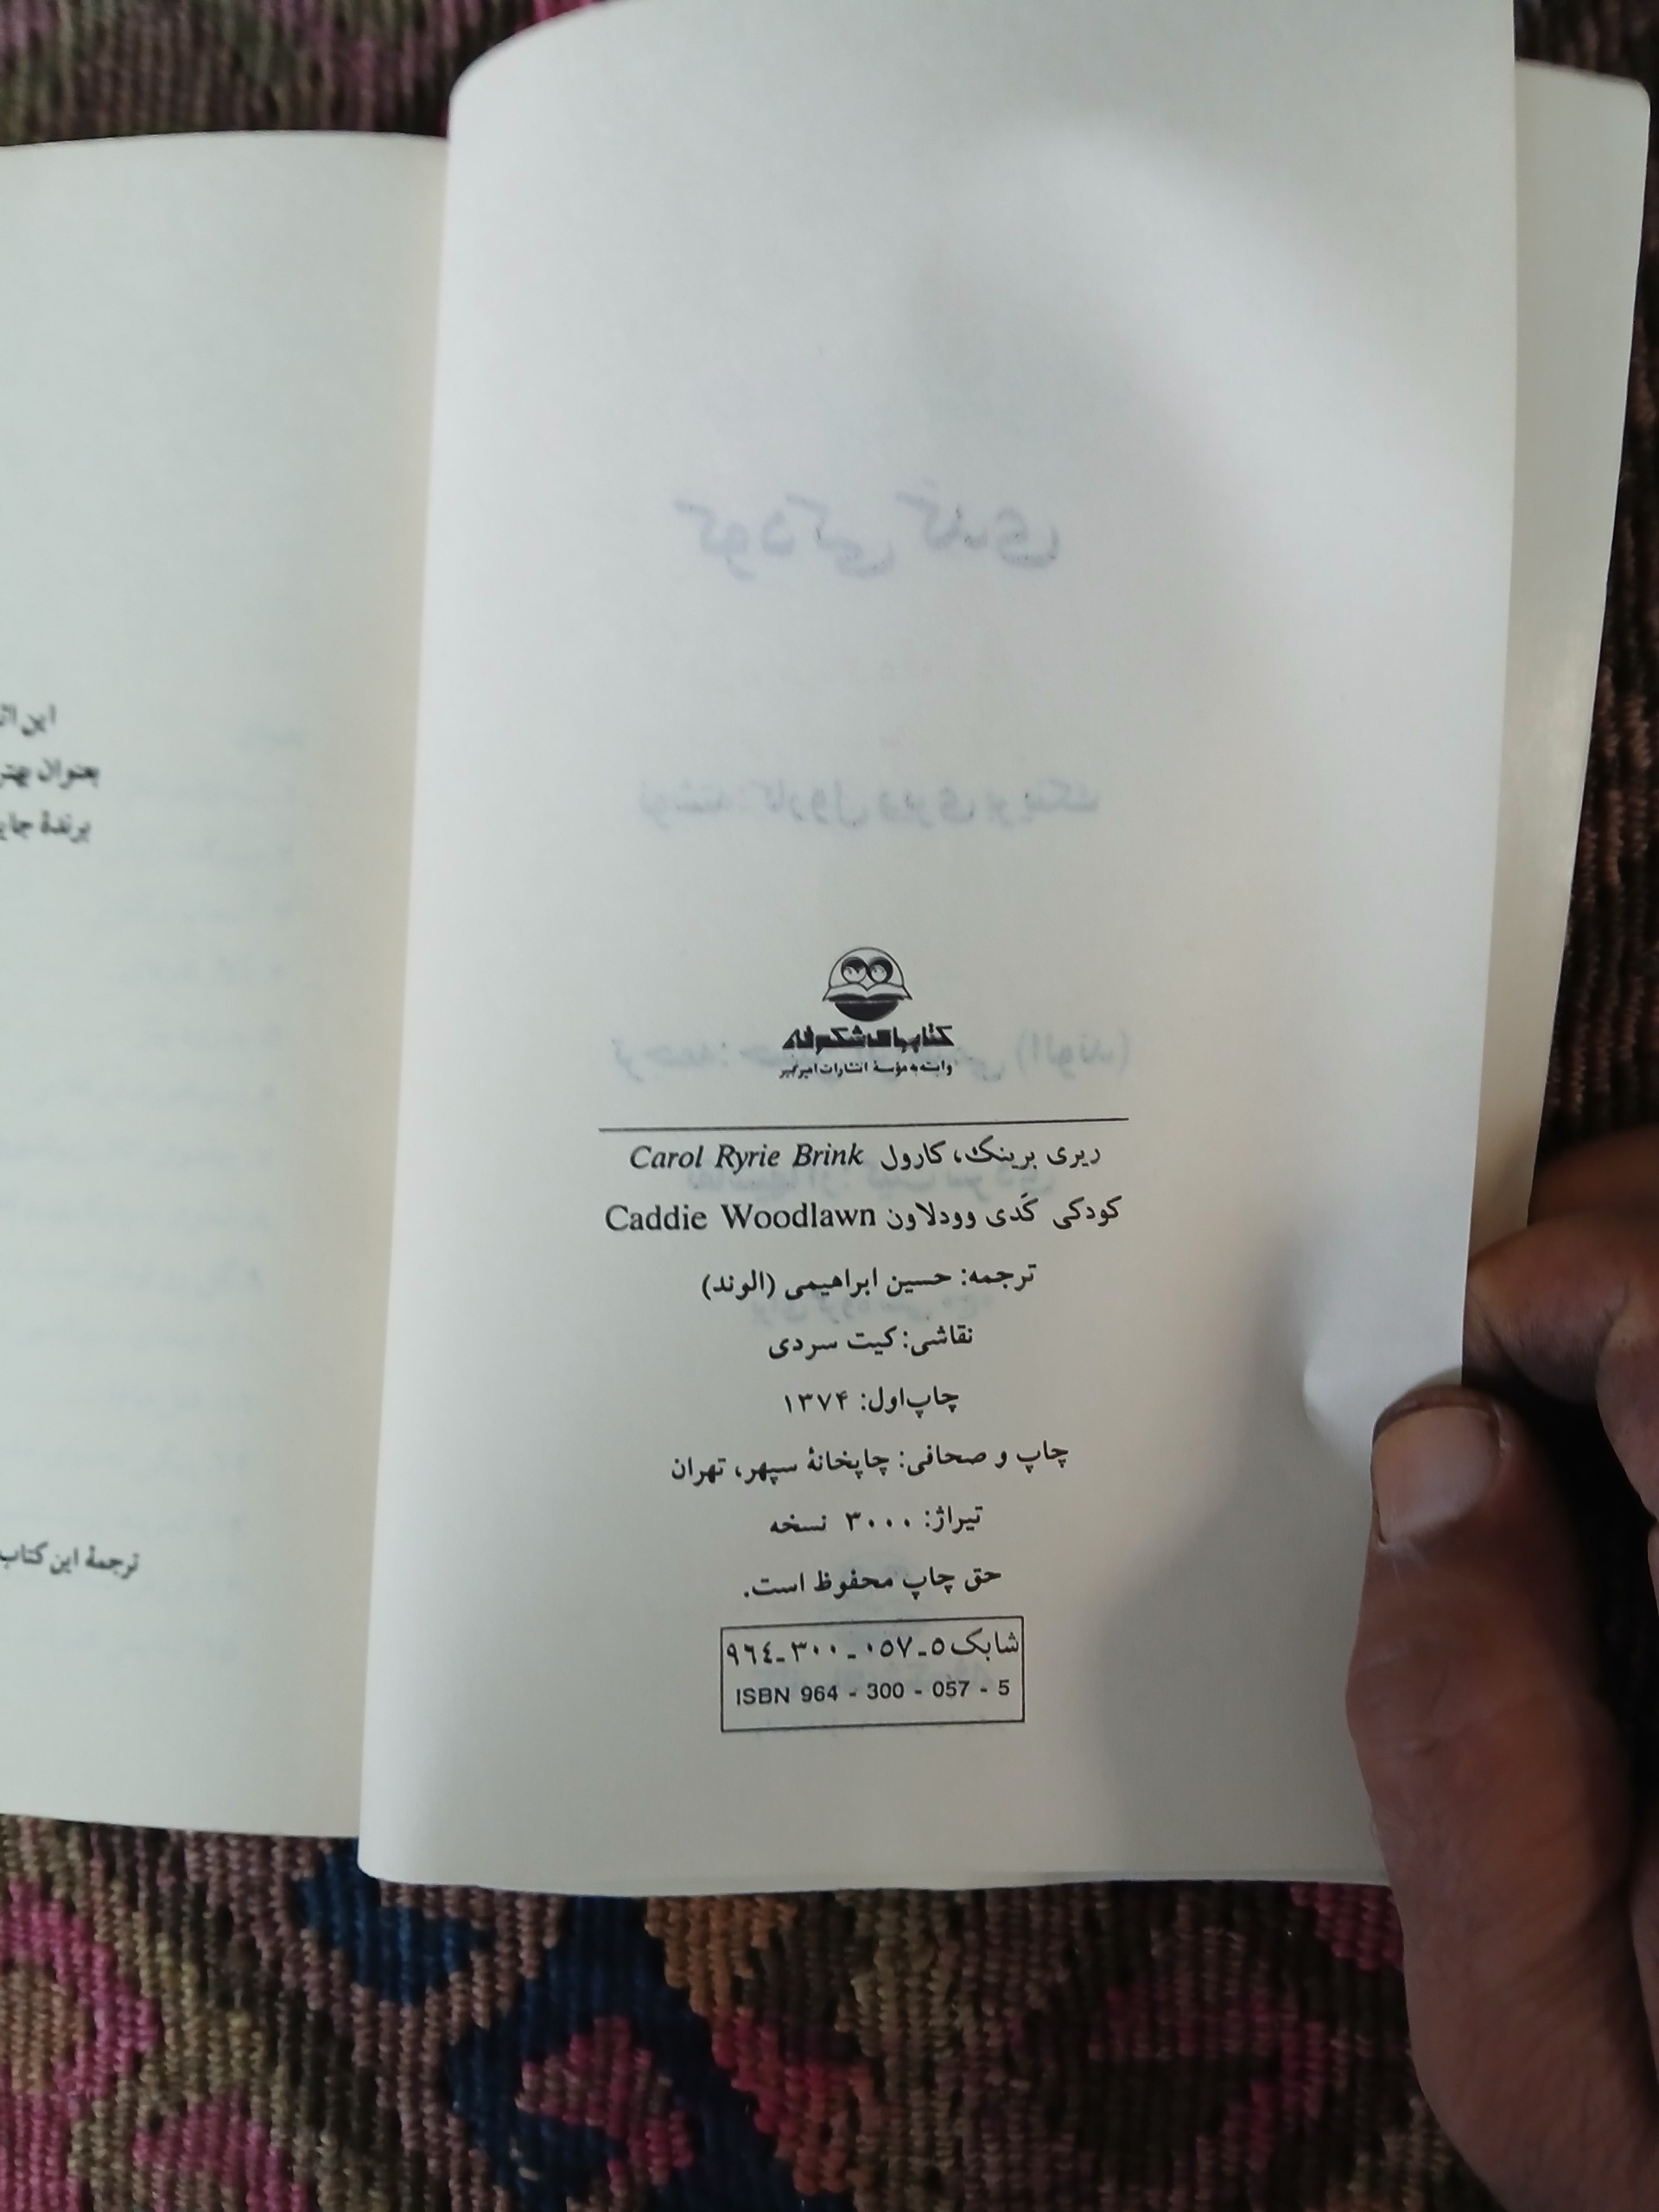 کتابهای شکوفه
وابسته به مؤسسهٔ انتشارات امیرکبیر
ریری برینک، کارول Carol Ryrie Brink
کودکی کَدی وودلاون Caddie Woodlawn
ترجمه: حسین ابراهیمی (الوند)
نقاشی: کیت سردی
چاپ‌اول: ۱۳۷۴
چاپ و صحافی: چاپخانهٔ سپهر، تهران
تیراژ: ۳۰۰۰ نسخه
حق چاپ محفوظ است.
شابک ۵-۰۵۷-۳۰۰-۹۶۴
ISBN 964 - 300 - 057 - 5
این
بعنوان
برندهٔ
ترجمهٔ این کتاب